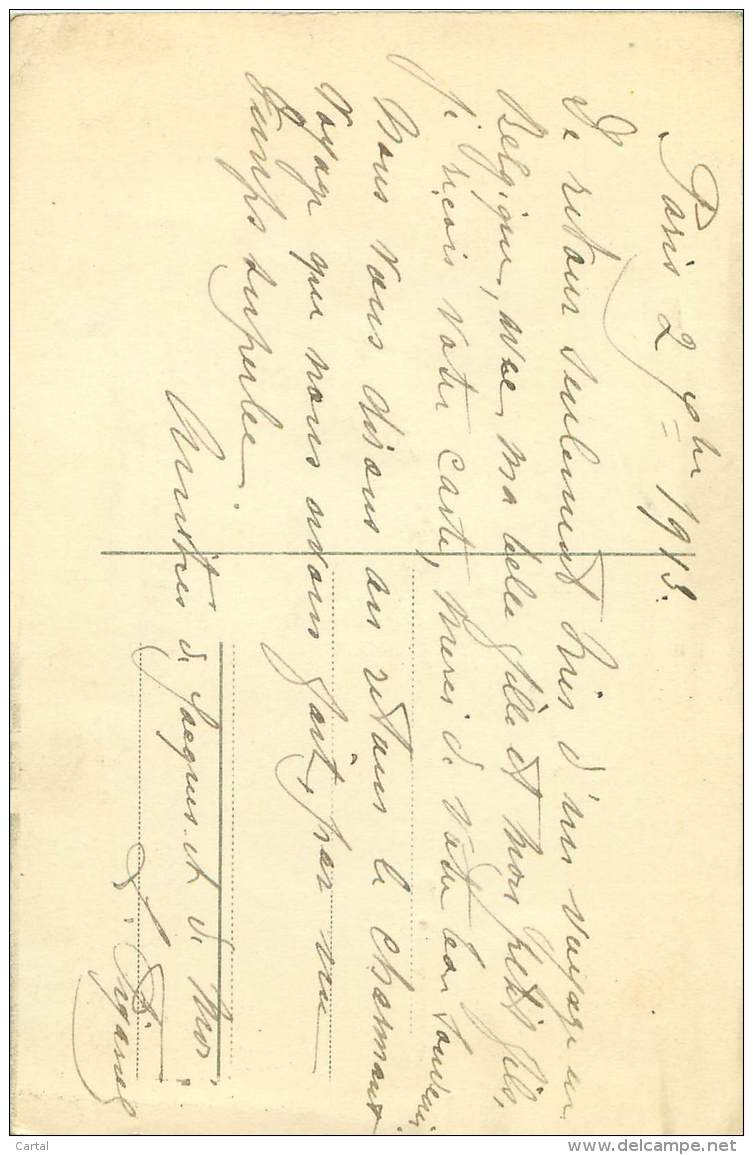 Paris 2 9bre 1913.
De retour seulement hier d'un voyage en
Belgique, avec ma belle fille et mon petit fils,
je reçois votre carte, merci de votre bon souvenir
Nous vous disons au retour le charmant
voyage que nous avons fait, par un
temps superbe
Amitiés de Jacques et de moi
Cartal
delcampe.net